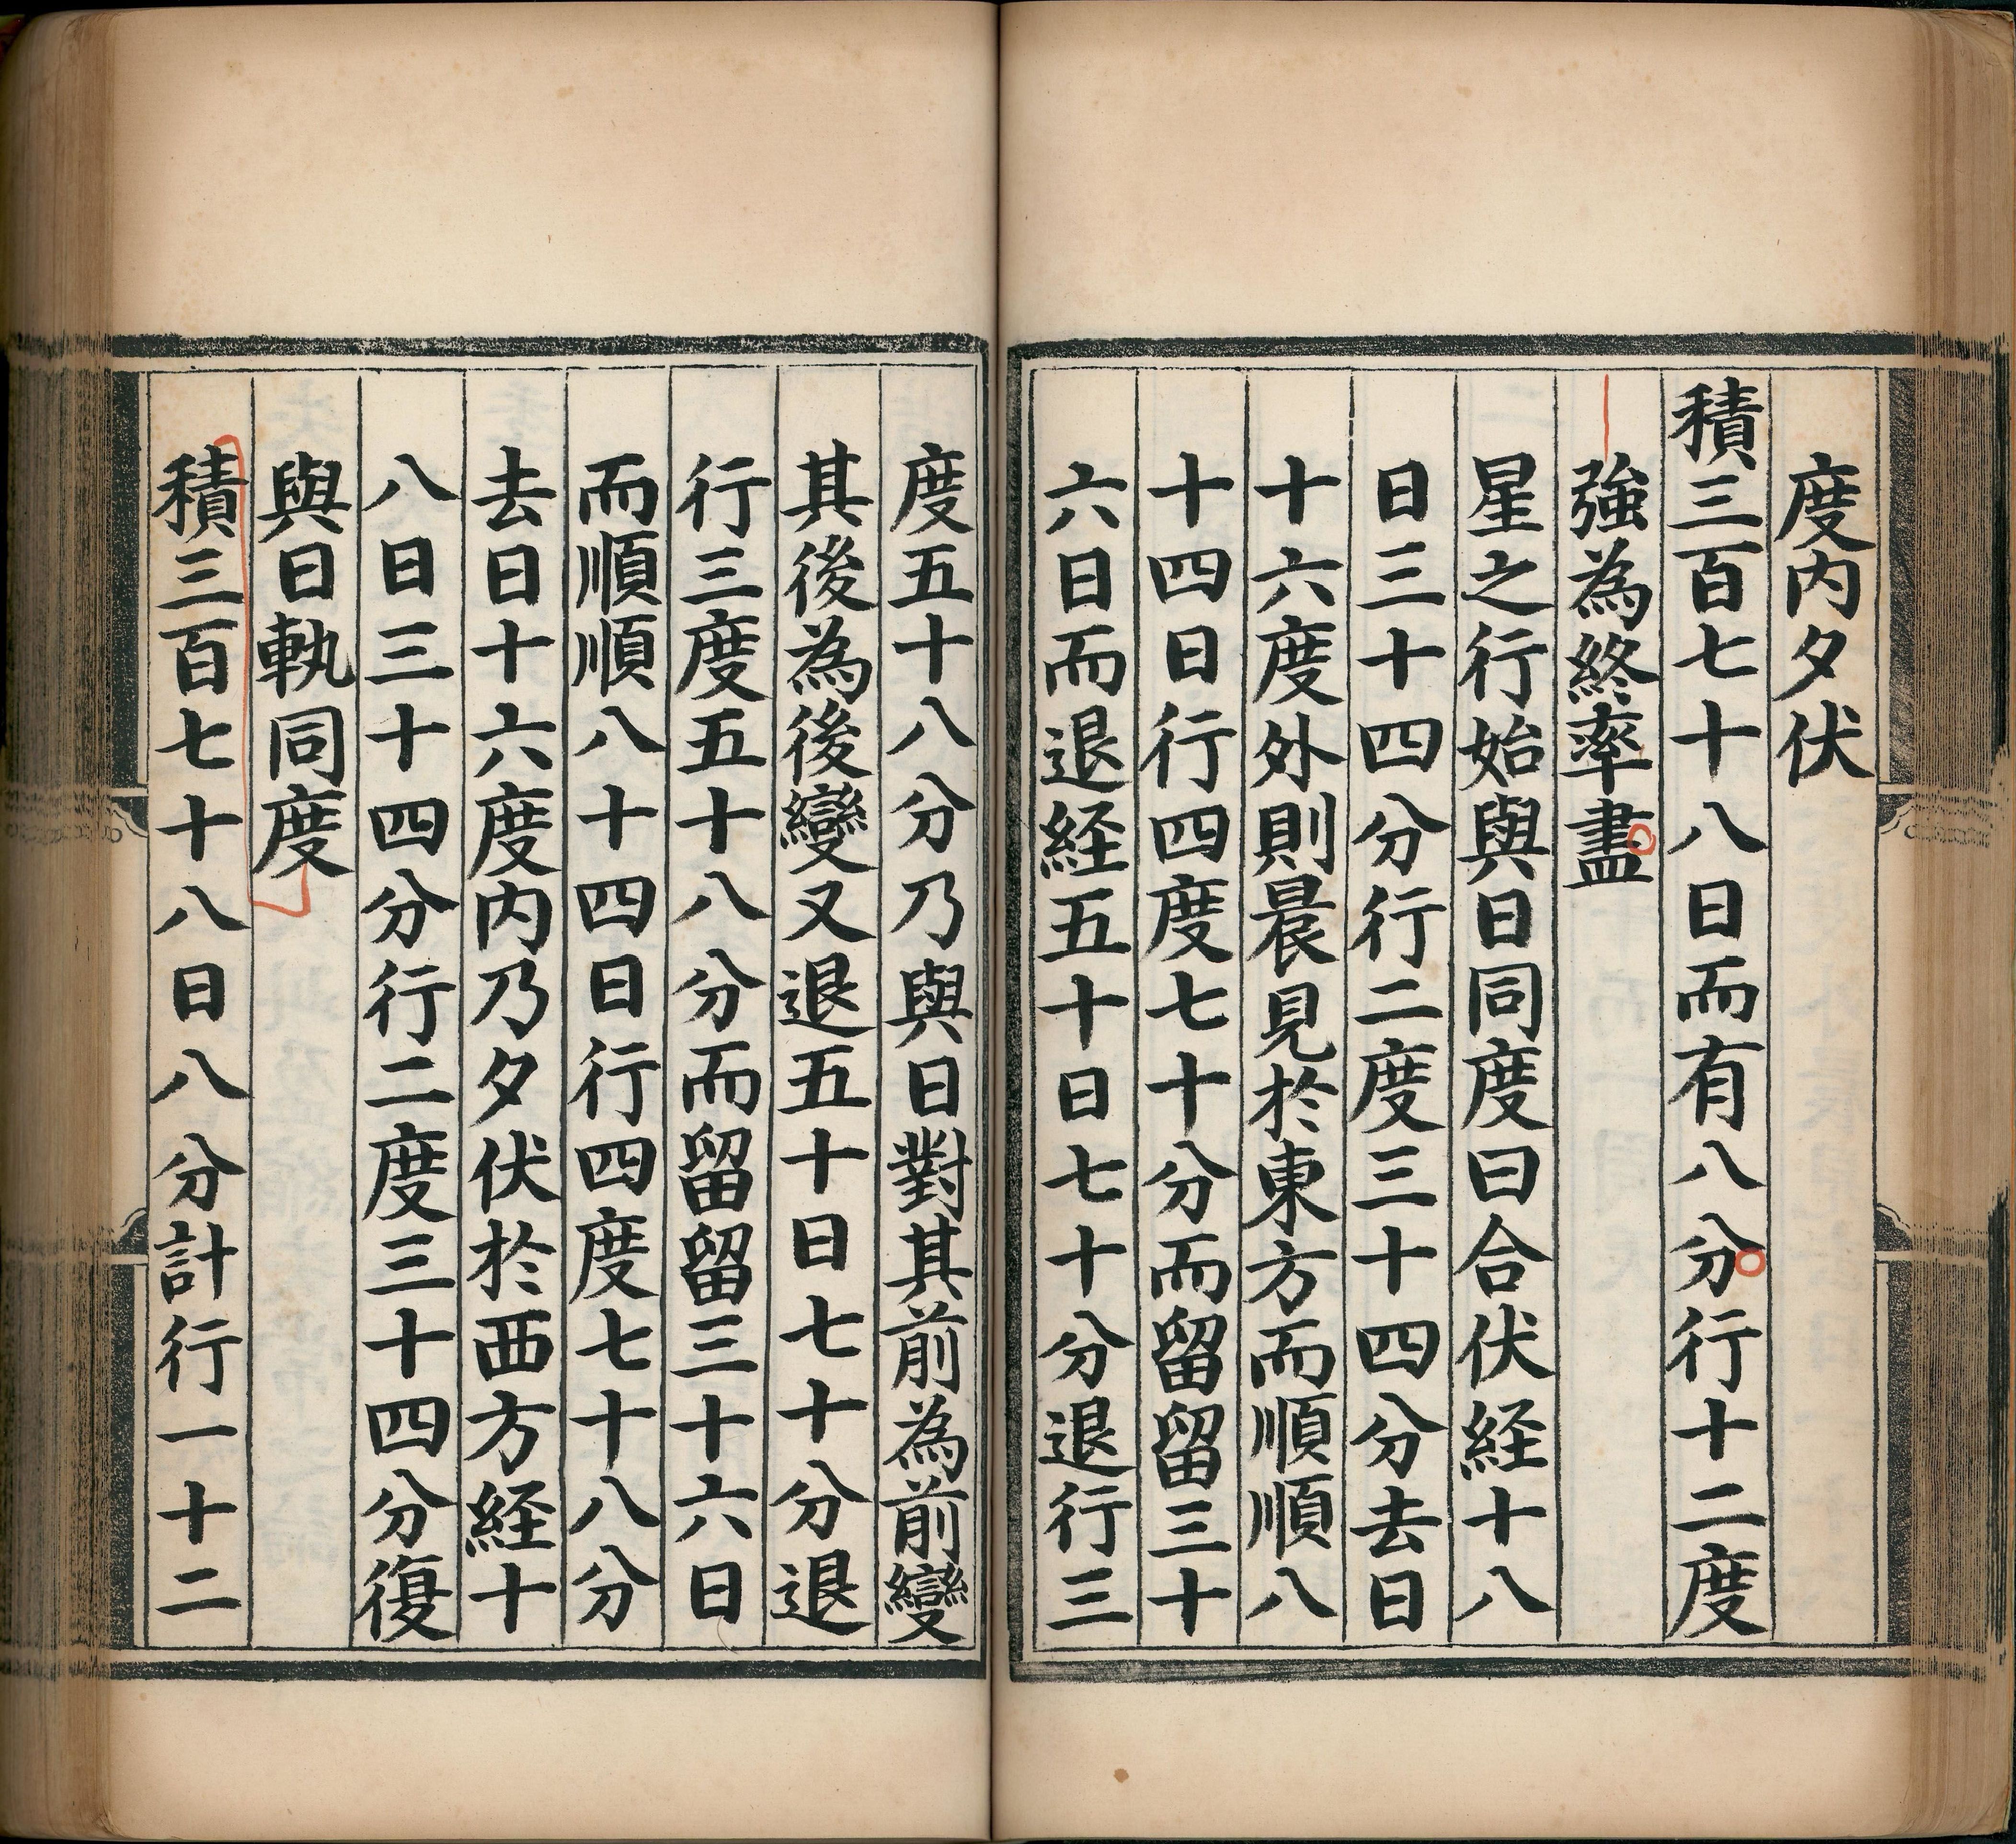 度内夕伏
積三百七十八日而有八分行十二度
強為終率盡
星之行始與日同度曰合伏経十八
日三十四分行二度三十四分去日
十六度外則晨見於東方而順順八
十四日行四度七十分而留留三十
六日而退経五十日七十分退行三
度五十八分乃與日對其前為前變
其後為後變又退五十日七十分退
行三度五十八分而留留三十六日
而順順八十四日行四度七十八分
去日十六度内乃夕伏於西方経十
八日三十四分行二度三十四分復
與日執同度
積三百七十八日八分計行一十二